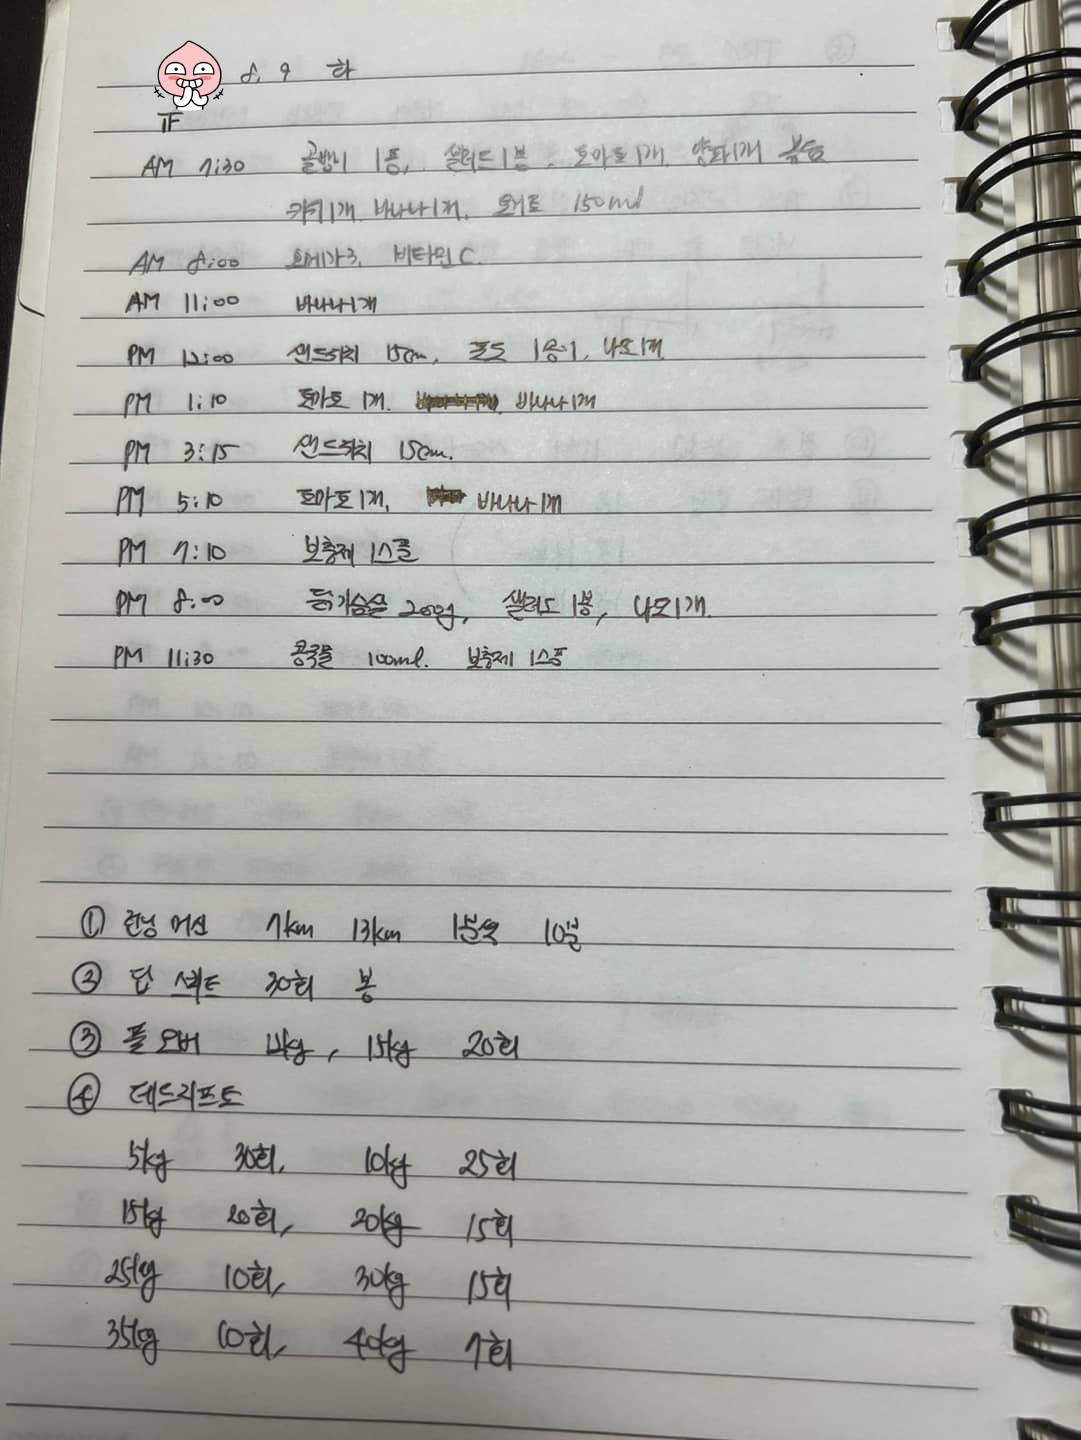 8. 9 화
AM 7:30 골뱅이 1품, 샐러드 1봉, 토마토 1개, 양파 1개 볶음
키위 1개, 바나나 1개, 요거트 150ml
AM 8:00 오메가3, 비타민C.
AM 11:00 바나나 1개
PM 12:00 샌드위치 15cm, 포도 1송이, 나또 1개
PM 1:10 토마토 1개, 바나나 1개
PM 3:15 샌드위치 15cm.
PM 5:10 토마토 1개, 바나나 1개
PM 7:10 보충제 1스푼
PM 8:00 닭가슴살 200g, 샐러드 1봉, 나또 1개.
PM 11:30 콩국물 100ml. 보충제 1스푼
① 런닝 머신 7km 13km 1분씩 10분
② 딥 스쿼트 30회 봉
③ 풀오버 12kg, 15kg 20회
④ 데드리프트
5kg 30회, 10kg 25회
15kg 20회, 20kg 15회
25kg 10회, 30kg 15회
35kg 10회, 40kg 7회